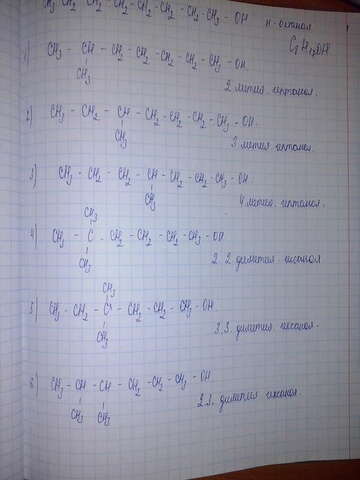 CH₂ CH₂ - CH₂ - CH₂ - CH₂ - CH₂ - CH₃ - OH
н-октанол
1) CH₃ - CH - CH₂ - CH₂ - CH₂ - CH₂ - CH₃ - OH
CH₃
2 метил. гептанол.
2) CH₃ - CH₂ - CH - CH₂ - CH₂ - CH₂ - CH₃ - OH
CH₃
3 метил гептанол.
3) CH₃ - CH₂ - CH₂ - CH - CH₂ - CH₂ - CH₃ - OH
CH₃
4 метил. гептанол.
CH₃
4) CH₃ - C - CH₂ - CH₂ - CH₂ - CH₃ - OH
CH₃
2. 2. диметил. гексанол
CH₃
5) CH₃ - CH₂ - C - CH₂ - CH₂ - CH₃ - OH
CH₃
3.3. диметил. гексанол.
6) CH₃ - CH - CH - CH₂ - CH₂ - CH₃ - OH
CH₃ CH₃
2.3. диметил гексанол.